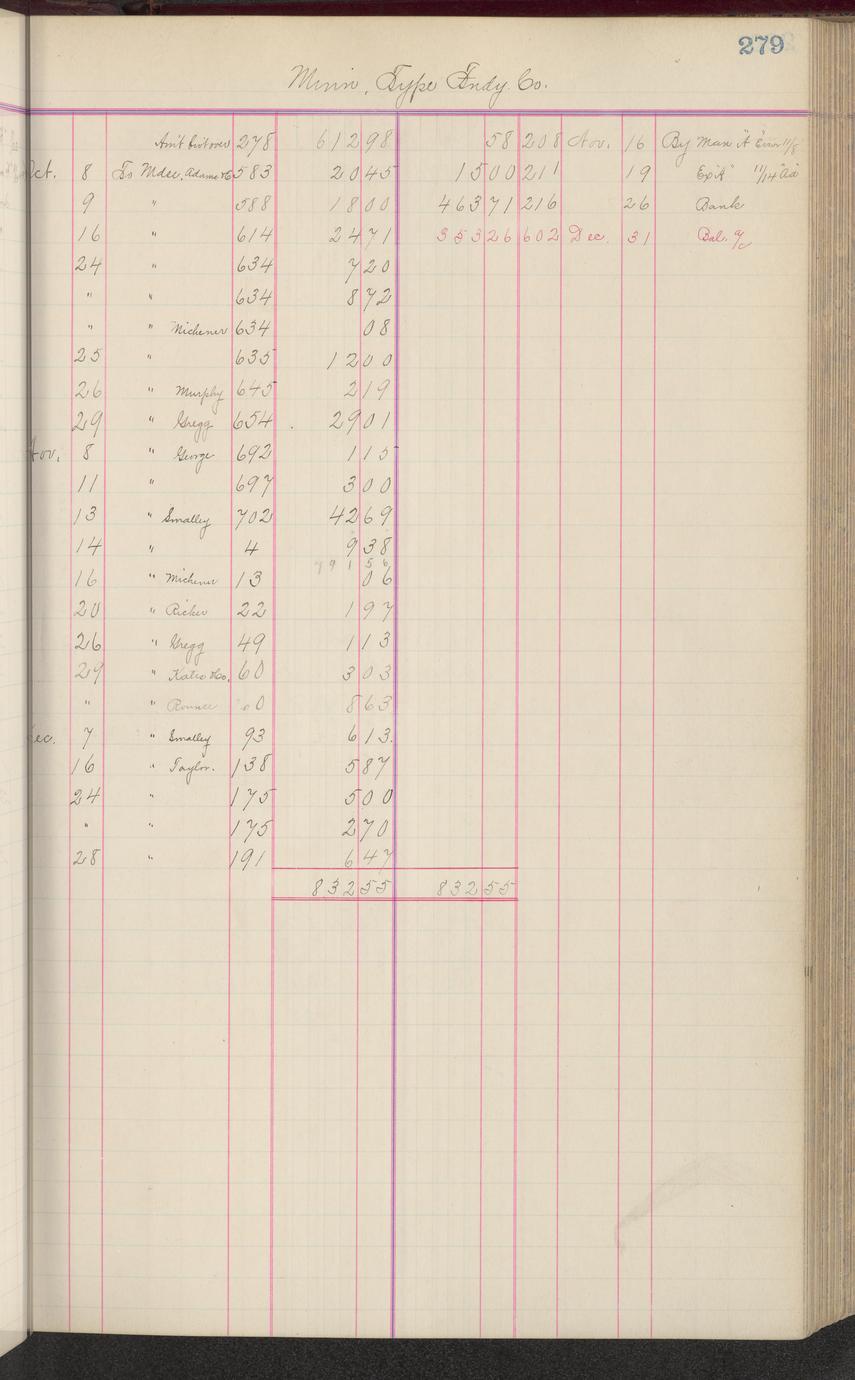 279
Minn. Type Fndy. Co.
Am't fw'd over 278 612 98 58 208 Nov. 16 By Man "A"
Oct. 8 To Mdse, Adams & Co 583 20 45 15 00 211 19 Ex "A" 11/14
9 " 588 18 00 463 71 216 26 Bank
16 " 614 24 71 353 26 602 Dec. 31 Bal. a/c
24 " 634 7 20
" " 634 8 72
" " Michener 634 08
25 " 635 12 00
26 " Murphy 645 2 19
29 " Gregg 654 29 01
Nov. 8 " George 692 1 15
11 " 697 3 00
13 " Smalley 702 42 69
14 " 4 9 38
791 56
16 " Michener 13 06
20 " Ricker 22 1 97
26 " Gregg 49 1 13
29 " & Co. 60 3 03
" " 60 8 63
Dec. 7 " Smalley 93 6 13
16 " Taylor. 138 5 87
24 " 175 5 00
" " 175 2 70
28 " 191 6 47
832 55 832 55